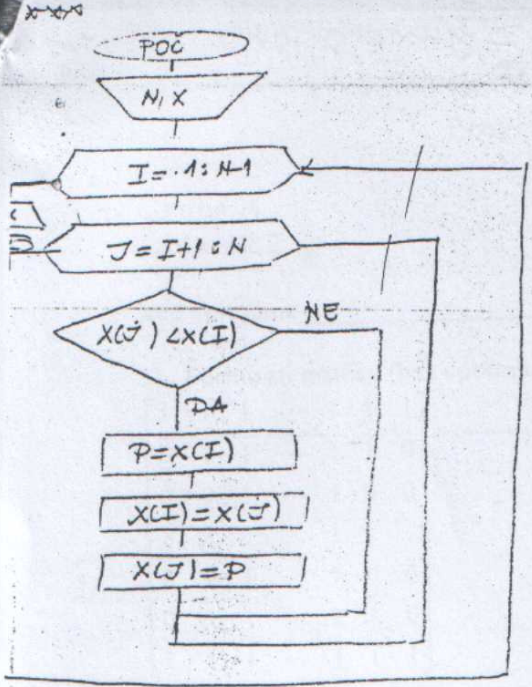 POC
N, X
I = 1 : N-1
J = I+1 : N
X(J) < X(I)
NE
DA
P=X(I)
X(I)=X(J)
X(J)=P